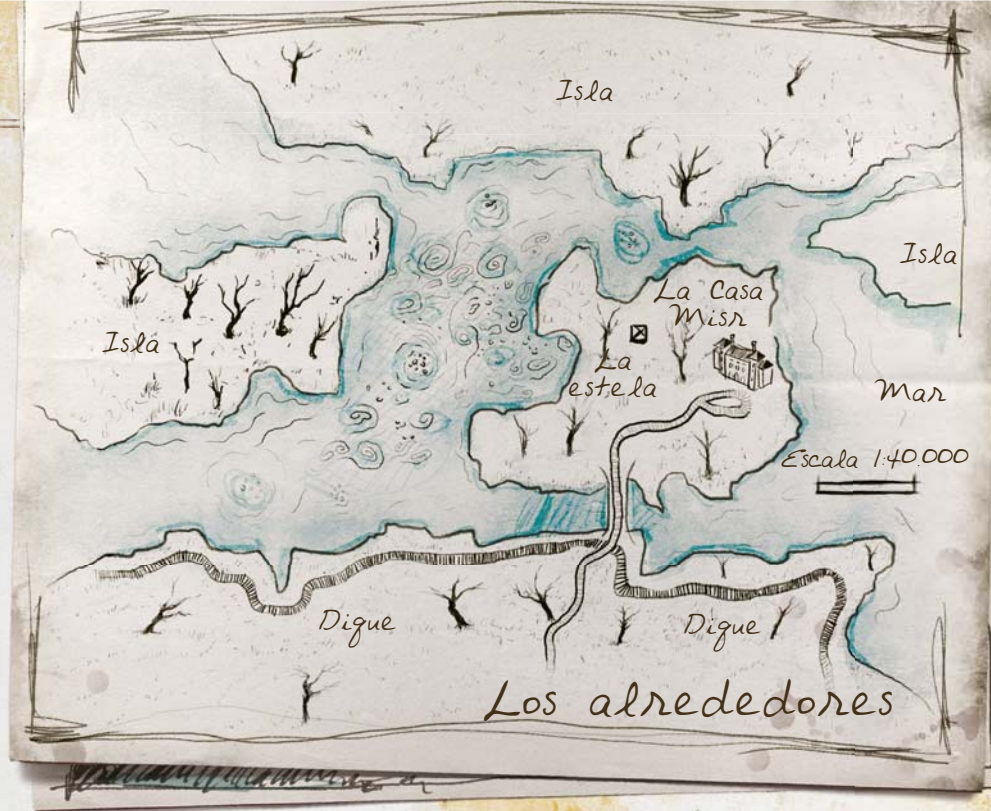 Isla
Isla
La Casa
Misr
Isla
La
estela
Mar
Escala 1:40.000
Dique
Dique
Los alrededores